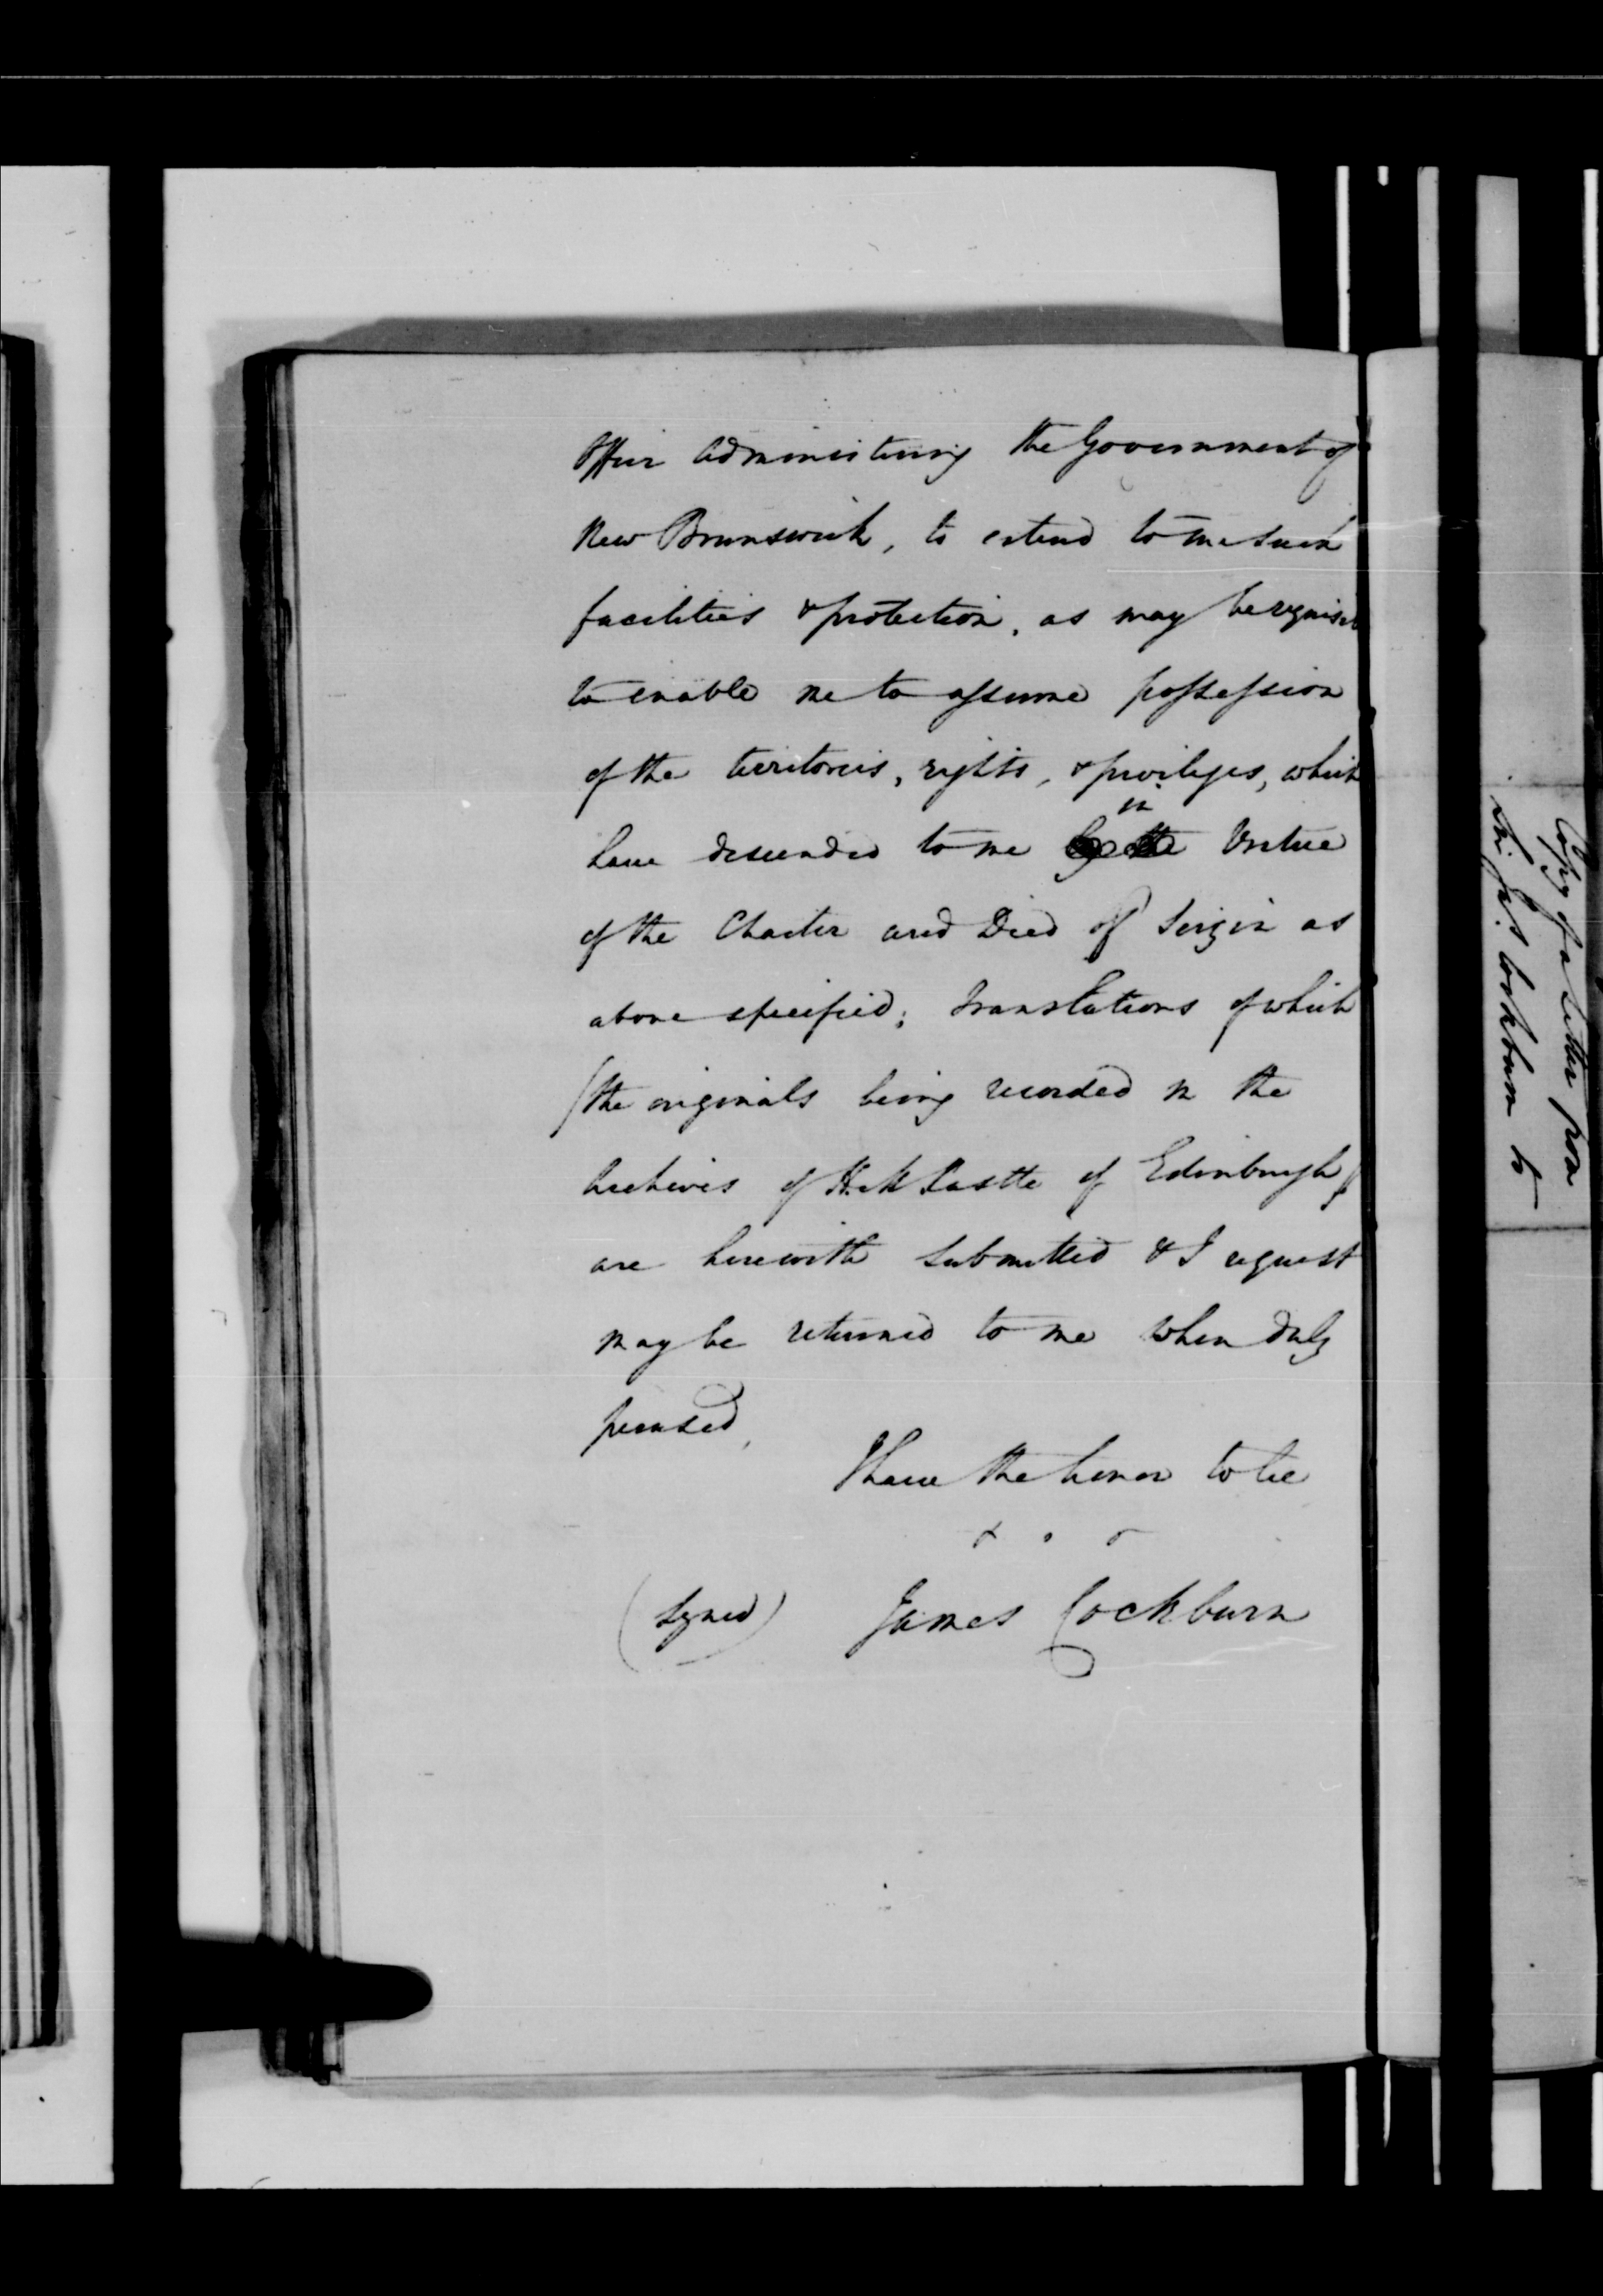 Officer Administering the Government of
New Brunswick, to extend to me such
facilities & protection, as may be requisite
to enable me to assume possession
of the territories, rights, & privileges, which
have descended to me by the in Virtue
of the Charter and Deed of Seizin as
above specified; translations of which
(the originals being recorded in the
Archives of H. M Castle of Edinburgh)
are herewith submitted & I request
may be returned to me when duly
perused,
I have the honor to be
& . &
(Signed) James Cockburn
Copy of a letter from
Sir Jas. Cockburn to